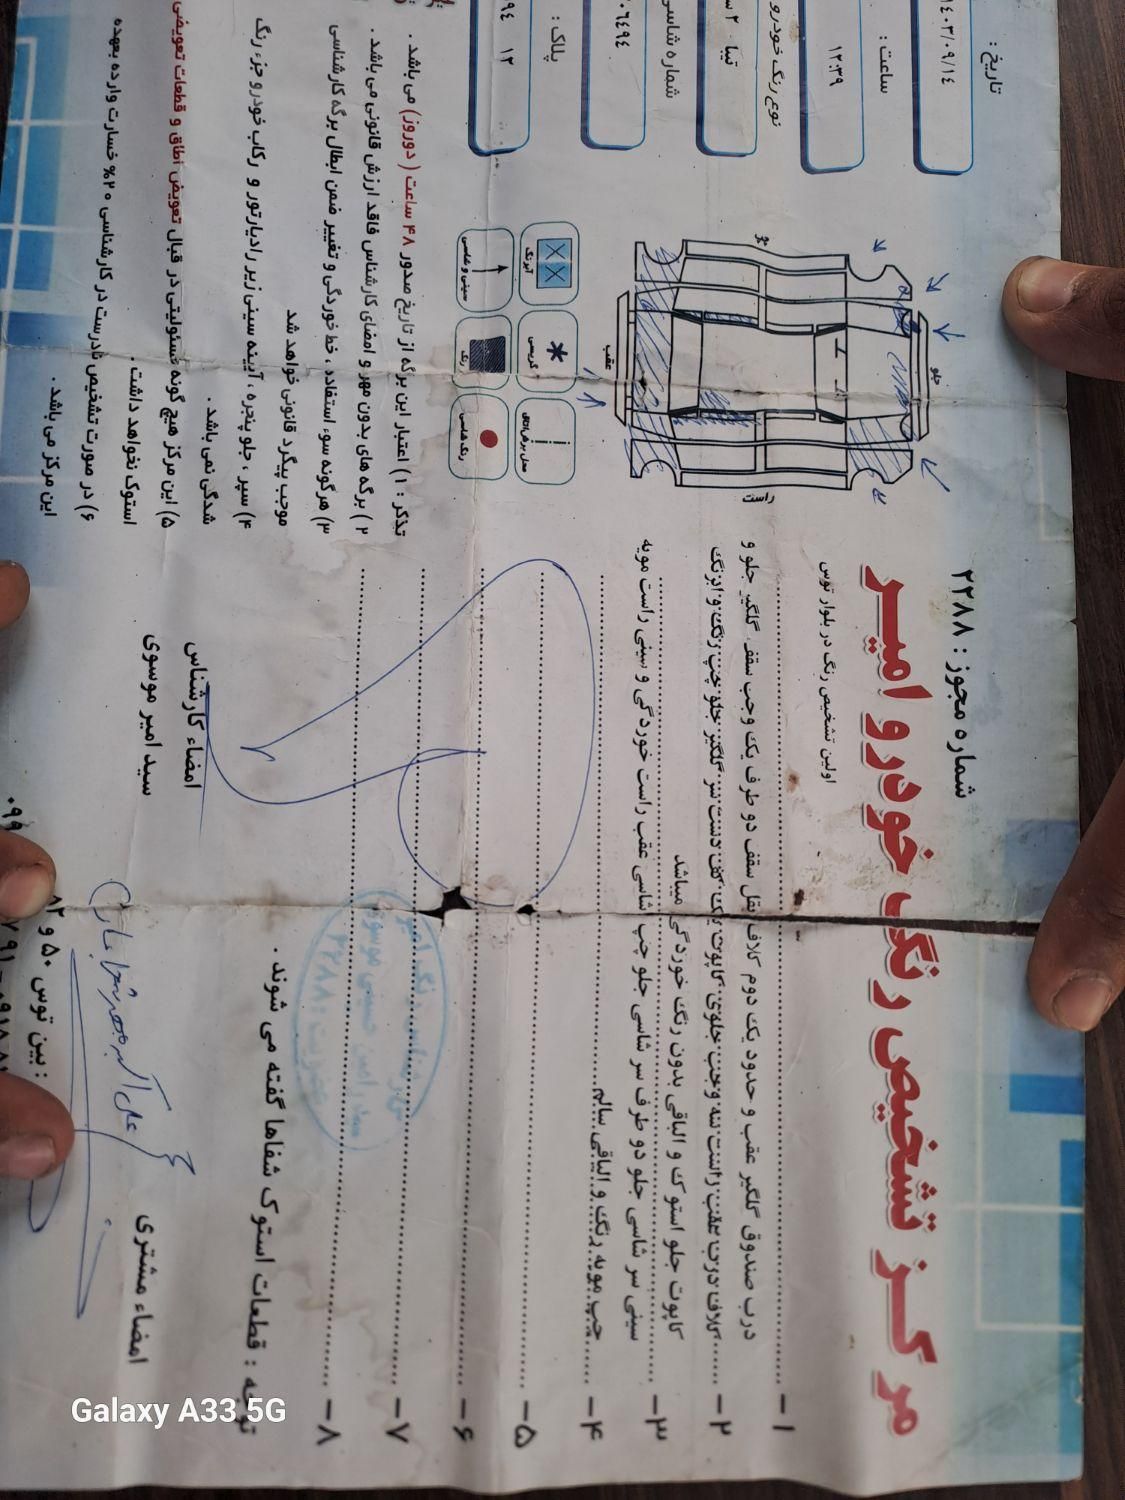 شماره مجوز : ۲۲۸۸
مرکز تشخیص رنگ خودرو امیر
اولین تشخیص رنگ در بلوار توس
تاریخ :
۱۴۰۳/۰۹/۱۴
ساعت :
۱۲:۳۹
نوع رنگ خودرو
تیبا ۲
شماره شاسی
۰۶۴۹۴
پلاک :
۹۴ ۱۲
جلو
عقب
راست
آبرنگ
گریسی
محل برش اتاق
سینی و شاسی
رنگ
رنگ شاسی
۱-
درب صندوق گلگیر عقب و حدود یک دوم کلاف بغل سقف دو طرف یک وجب سقف گلگیر جلو و
۲-
کلاف درب عقب راست سه وجب جلوی کاپوت یک کف دست سر گلگیر جلو چپ رنگ و آبرنگ
کاپوت جلو استوک و الباقی بدون رنگ خوردگی میباشد
۳-
سینی سر شاسی جلو دو طرف سر شاسی جلو چپ شاسی عقب راست خوردگی و سینی راست مویه
۴-
چپ مویه رنگ و الباقی سالم
۵-
۶-
۷-
۸-
توجه : قطعات استوک شفاها گفته می شوند .
تذکر : ۱) اعتبار این برگه از تاریخ صدور ۴۸ ساعت ( دوروز) می باشد .
۲ ) برگه های بدون مهر و امضای کارشناس فاقد ارزش قانونی می باشد .
۳) هرگونه سوء استفاده ، خط خوردگی و تغییر ضمن ابطال برگه کارشناسی
موجب پیگرد قانونی خواهد شد
۴) سپر ، جلو پنجره ، آیینه سینی زیر رادیارتور و رکاب خودرو جزء رنگ
شدگی نمی باشد .
۵) این مرکز هیچ گونه مسئولیتی در قبال تعویض اطاق و قطعات تعویضی
استوک نخواهد داشت .
۶) در صورت تشخیص نادرست در کارشناسی ۲۰% خسارت وارده بعهده
این مرکز می باشد .
امضاء کارشناس
سید امیر موسوی
امضاء مشتری
کارشناس رنگ امیر
سید امیر حسینی موسوی
عضویت : ۲۲۸۸
: بین توس ۵۰ و ۵۲
Galaxy A33 5G